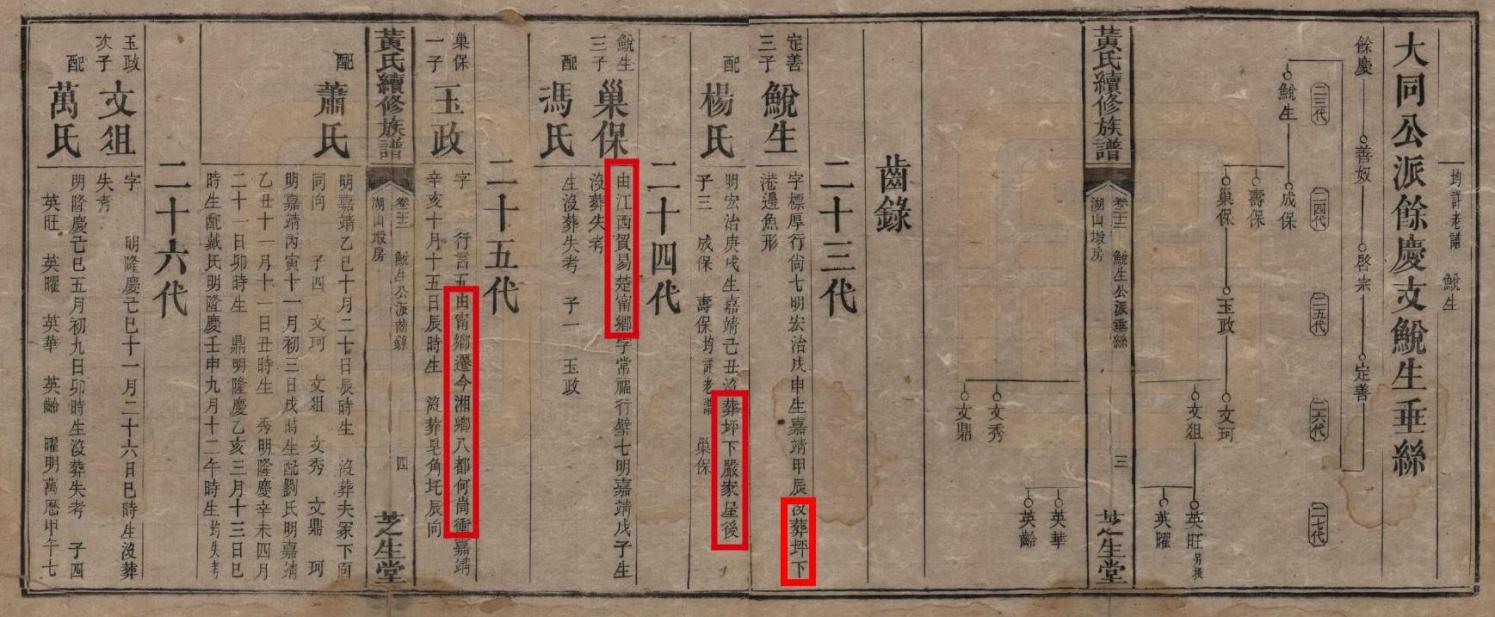 一均訐老譜 鮵生
大同公派餘慶支鮵生垂絲
餘慶 善奴 啓宗 定善
二三代 二四代 二五代 二六代 二七代
鮵生 成保
壽保
巢保 玉政 文珂
文珇 英旺
英曜
文秀 英華
文鼎 英齡
黃氏續修族譜 鮵生公派垂絲 湖山墩房 三 芝生堂
齒錄
二十三代
定善三子 鮵生 字標厚行尙七明宏治戊申生嘉靖甲辰沒葬坪下
港邊魚形
配 楊氏 明宏治庚戌生嘉靖己丑沒葬坪下嚴家屋後
子三 成保 壽保均訐老譜 巢保
二十四代
鮵生三子 巢保 由江西貿易楚甯鄉字常福行璧七明嘉靖戊子生
沒葬失考
配 馮氏 生沒葬失考 子一 玉政
二十五代
巢保一子 玉政 字 行言五由甯鄉遷今湘鄉八都何尙衝嘉靖
辛亥十月十五日辰時生 沒葬皂角圫辰向
黃氏續修族譜 鮵生公派齒錄 湖山墩房 四 芝生堂
配 蕭氏 明嘉靖乙巳十月二十日辰時生 沒葬夫冢下
同向 子四 文珂 文珇 文秀 文鼎 珂
明嘉靖丙寅十一月初三日戌時生配劉氏明嘉靖
乙丑十一月十一日丑時生 秀明隆慶辛未四月
二十一日卯時生 鼎明隆慶乙亥三月十三日巳
時生配戴氏明隆慶壬申九月十二午時生均失考
二十六代
玉政次子 文珇 字 明隆慶己巳十一月二十六日巳時生沒葬
失考
配 萬氏 明隆慶己巳五月初九日卯時生沒葬失考 子四
英旺 英曜 英華 英齡 曜明萬歷甲午七